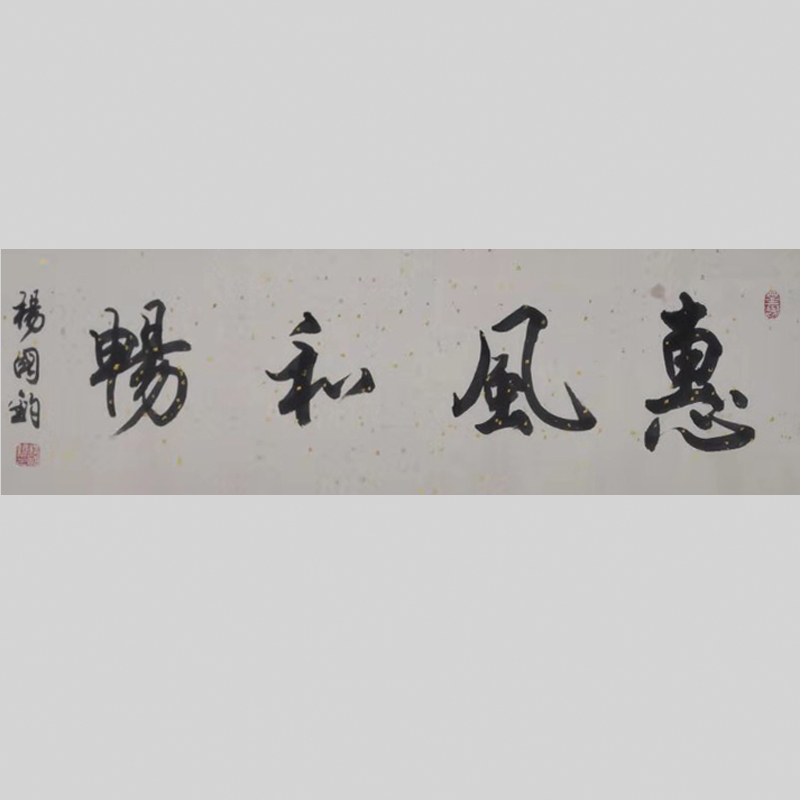 惠風和暢
楊國鈞